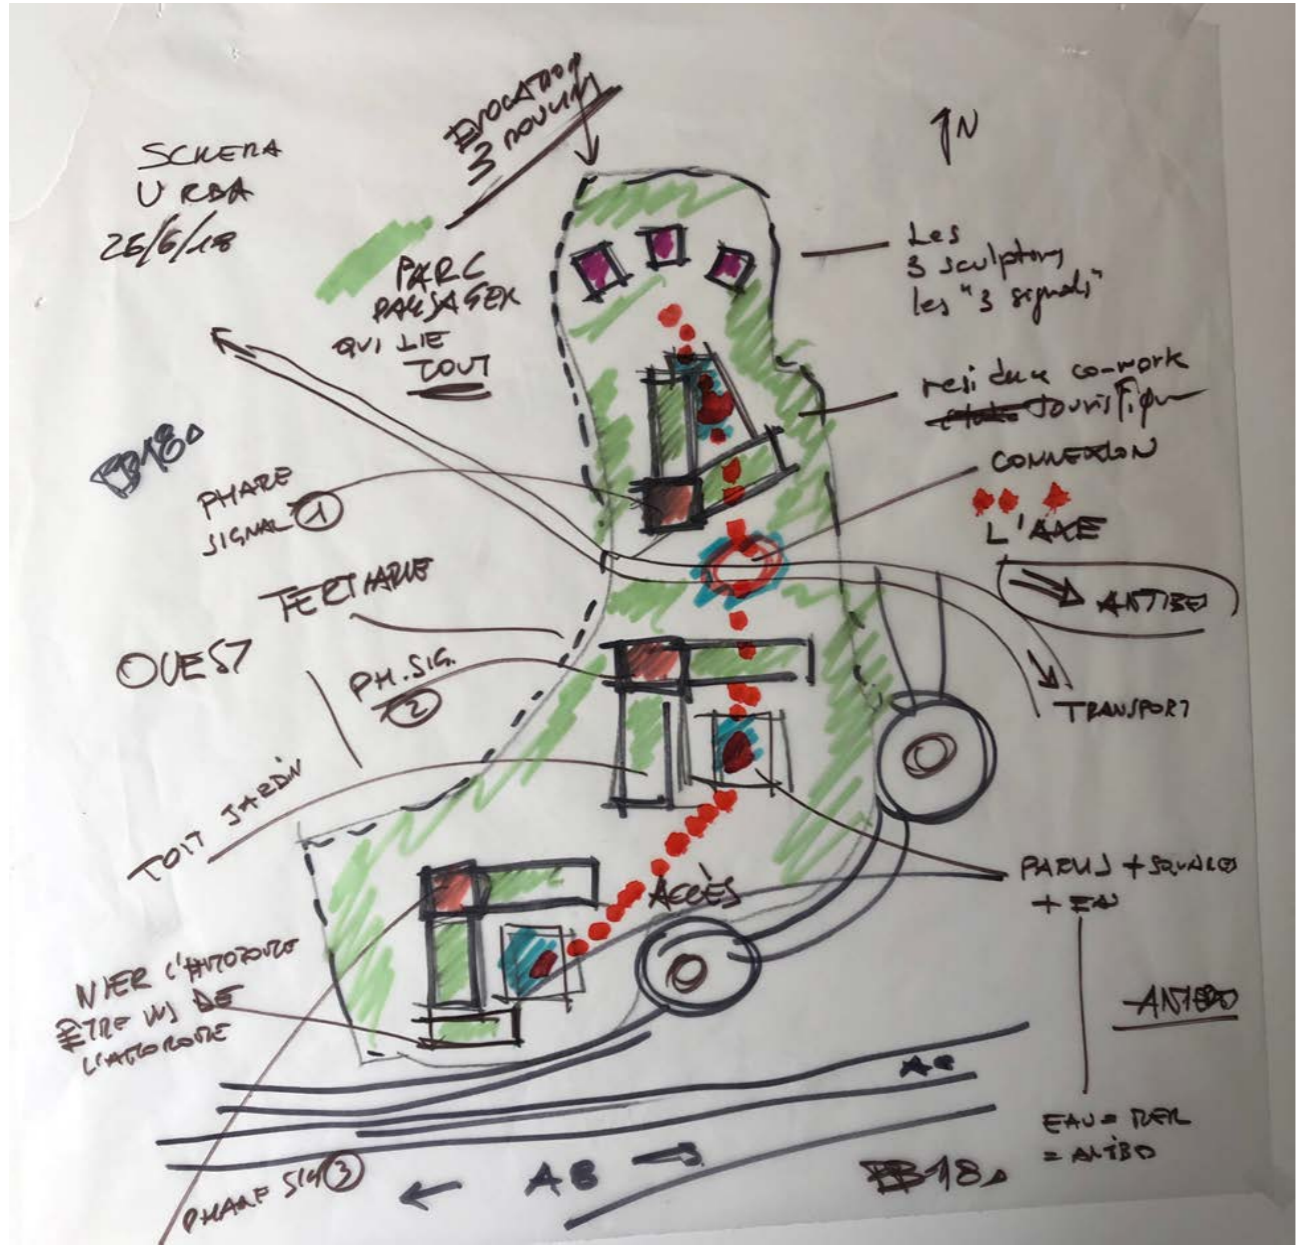 SCHEMA
URBA
26/6/18
EVOCATION
3
PARC
PAYSAGER
QUI LIE
TOUT
N
Les
3 sculptures
les "3 signals"
co-work
touristique
CONNEXION
L'AXE
ANTIBES
TRANSPORT
BB18
PHARE
SIGNAL 1
TERTIAIRE
OUEST
PH. SIG.
2
TOIT JARDIN
ACCÈS
PARVIS + SQUARES
+ EAU
NIER L'AUTOROUTE
ÊTRE VU DE
L'AUTOROUTE
ANTIBES
A8
EAU = MER
= ANTIBES
PHARE SIG 3
A8
BB18